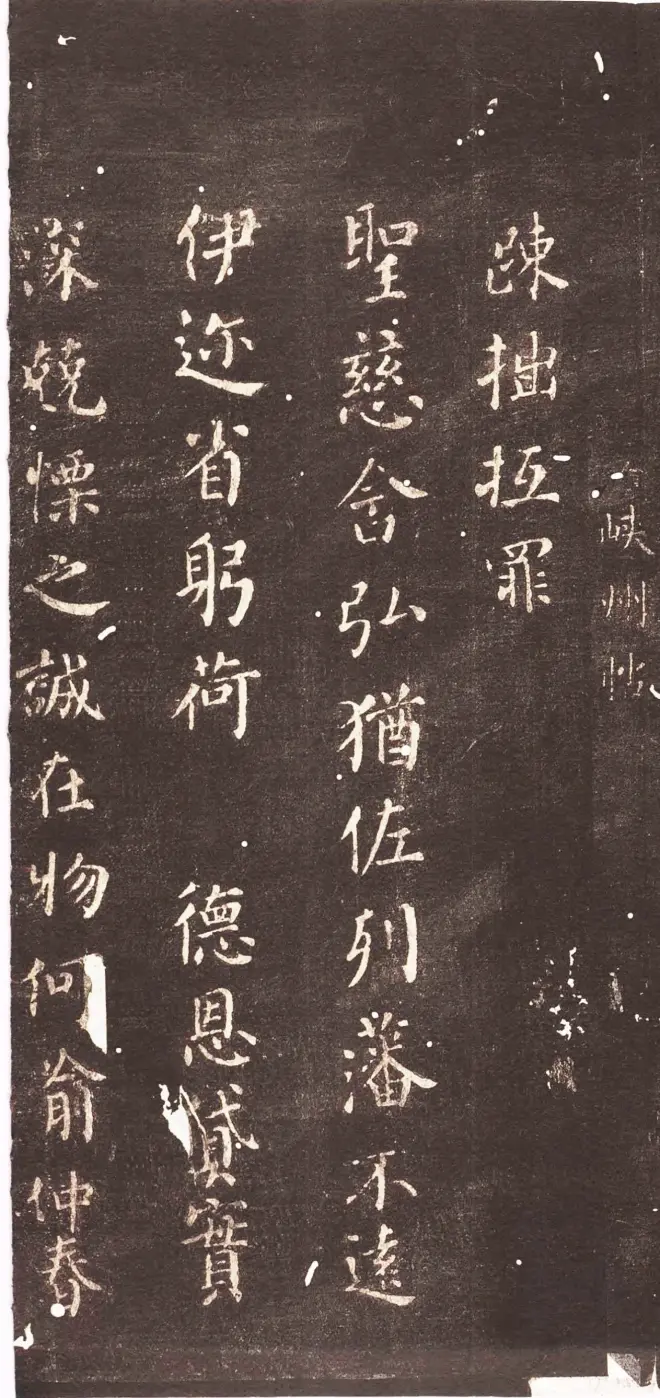 峽州帖
踈拙抵罪
聖慈含弘猶佐列藩不遠
伊迩省躬荷 德恩貸實
深兢慄之誠在物何俞仲春